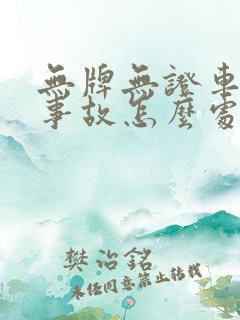 無牌無證車
事故怎麼處
樊治銘
未经同意禁止转载